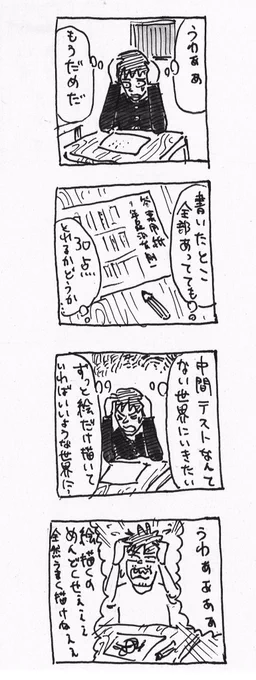 うわぁぁ
もうだめだ
書いたとこ
全部あってても。
30点
とれるかどうか…
答案用紙
中間テストなんて
ない世界にいきたい
ずっと絵だけ描いて
いればいいような世界に…
うわぁぁぁぁ
絵描くの
めんどくせえええ
全然うまく描けねぇぇ